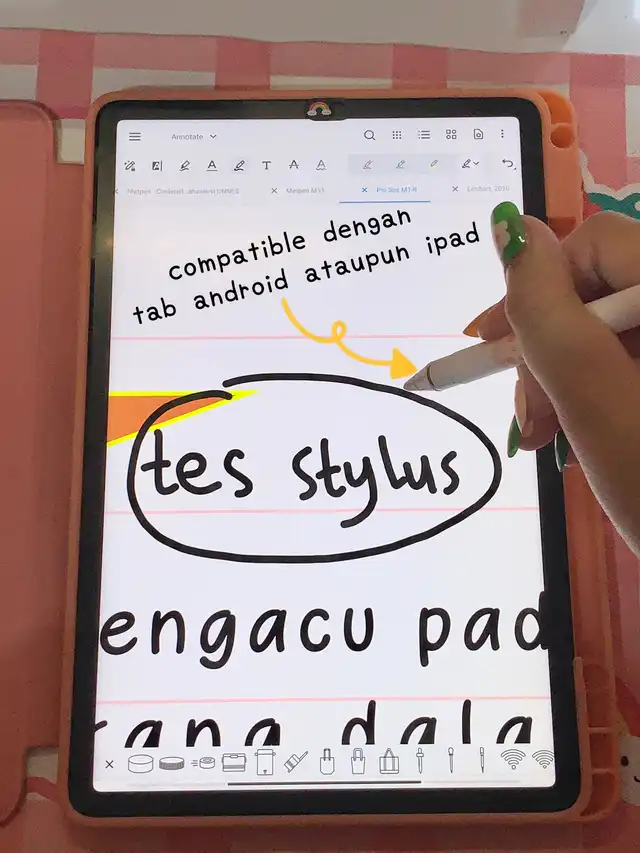 Annotate
Pro Sos M1-6
compatible dengan
tab android ataupun ipad
tes stylus
engacu pad
rang dala